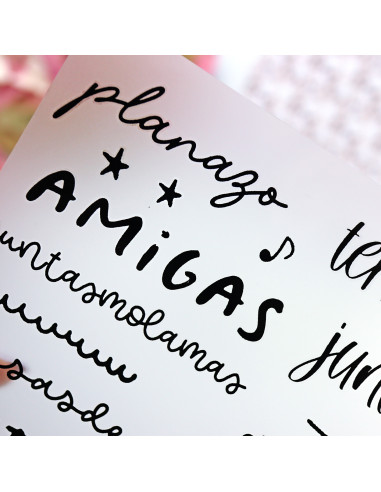 planazo
AMiGAS
untasmolamas
sasde
te
jun